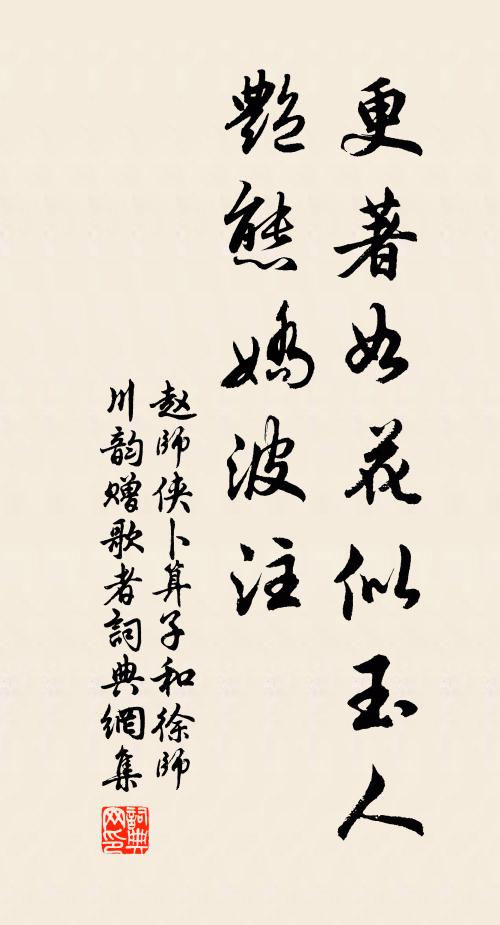 更著如花似玉人
艷態嬌波注
赵師俠卜算子和徐師
川韵赠歌者詞典網集
詞典
网印